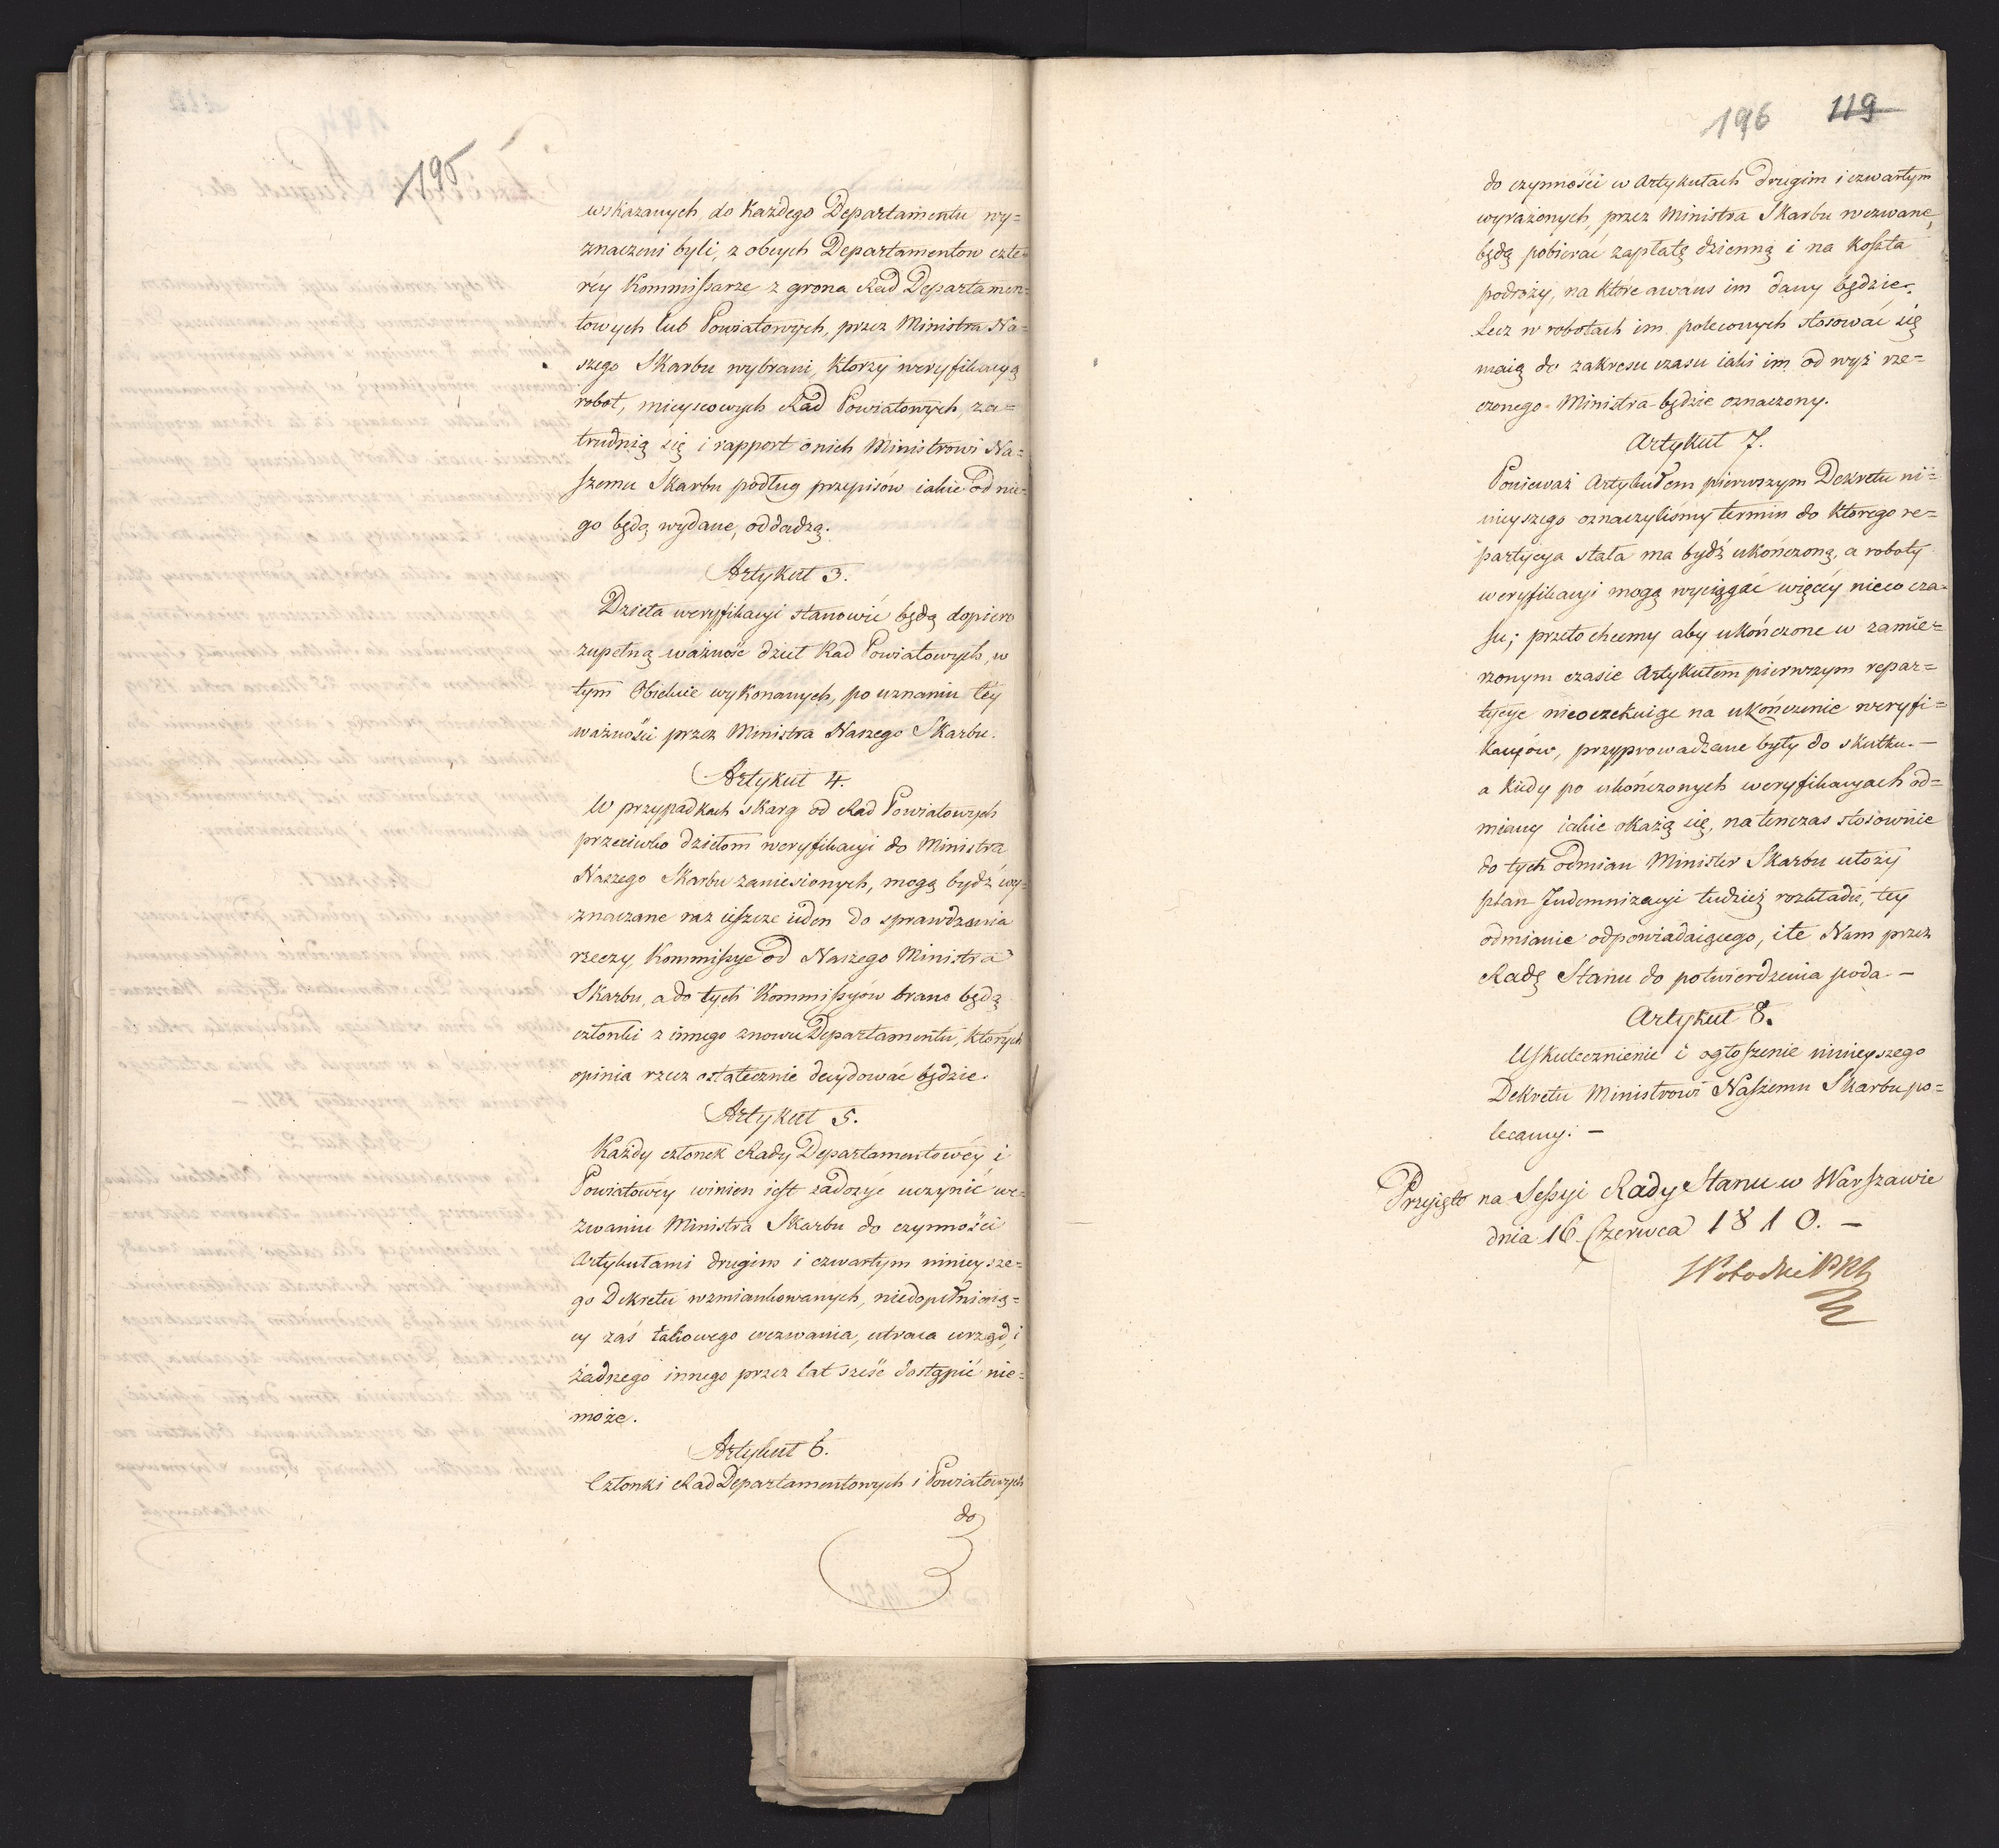 195
wskazanych, do każdego Departamentu wy=
znaczeni byli, z obcych Departamentow czte=
réy Kommissarze z grona Rad Departamen=
towych lub Powiatowych, przez Ministra Na=
szego Skarbu wybrani, ktorzy weryfikacyą
robot, mieyscowych Rad Powiatowych, za=
trudnią się i rapport o nich Ministrowi Na=
szemu Skarbu podług przepisów iakie od nie=
go będą wydane, oddadzą.
Artykuł 3.
Dzieła weryfikacyi stanowić będą dopiero
zupełną ważność dzieł Rad Powiatowych, w
tym Obiekcie wykonanych, po uznaniu tey
ważności przez Ministra Naszego Skarbu.
Artykuł 4.
W przypadkach skarg od Rad Powiatowych
przeciwko dziełom weryfikacyi do Ministra
Naszego Skarbu zaniesionych, mogą bydź wy=
znaczane raz ieszcze ieden do sprawdzania
rzeczy, Kommissye od Naszego Ministra
Skarbu, a do tych Kommissyów brane będą
członki z innego znowu Departamentu, których
opinia rzecz ostatecznie decydować będzie.
Artykuł 5.
Każdy członek Rady Departamentowéy i
Powiatowéy winien iest zadosyć uczynić we=
zwaniu Ministra Skarbu do czynności
Artykułami drugim i czwartym ninieysze=
go Dekretu wzmiankowanych, niedopełniaią=
cy zaś takowego wezwania, utraca urząd, i
żadnego innego przez lat sześć dostąpić nie=
może.
Artykuł 6.
Członki Rad Departamentowych i Powiatowych
do
196 119
do czynności w Artykułach drugim i czwartym
wyrażonych, przez Ministra Skarbu wezwane,
będą pobierać zapłatę dzienną i na koszta
podróży, na które awans im dany będzie.
Lecz w robotach im poleconych stosować się
maią do zakresu czasu iaki im od wyż rze=
czonego Ministra będzie oznaczony.
Artykuł 7.
Ponieważ Artykułem pierwszym Dekretu ni=
nieyszego oznaczyliśmy termin do którego re=
partycya stała ma bydź ukończoną, a roboty
weryfikacyi mogą wyciągać więcéy nieco cza=
su; przeto chcemy aby ukończone w zamie=
rzonym czasie Artykułem pierwszym repar=
tycye nieoczekuiąc na ukończenie weryfi=
kacyów, przyprowadzane były do skutku. —
a kiedy po ukończonych weryfikacyach od=
miany iakie okażą się, natenczas stosownie
do tych odmian Minister Skarbu ułoży
plan Indemnizacyi tudzież rozkładu, tey
odmianie odpowiadaiącego, i te Nam przez
Radę Stanu do potwierdzenia poda. —
Artykuł 8.
Uskutecznienie i ogłoszenie ninieyszego
Dekretu Ministrowi Naszemu Skarbu po=
lecamy. —
Przyięto na Sessyi Rady Stanu w Warszawie
dnia 16 Czerwca 1810. —